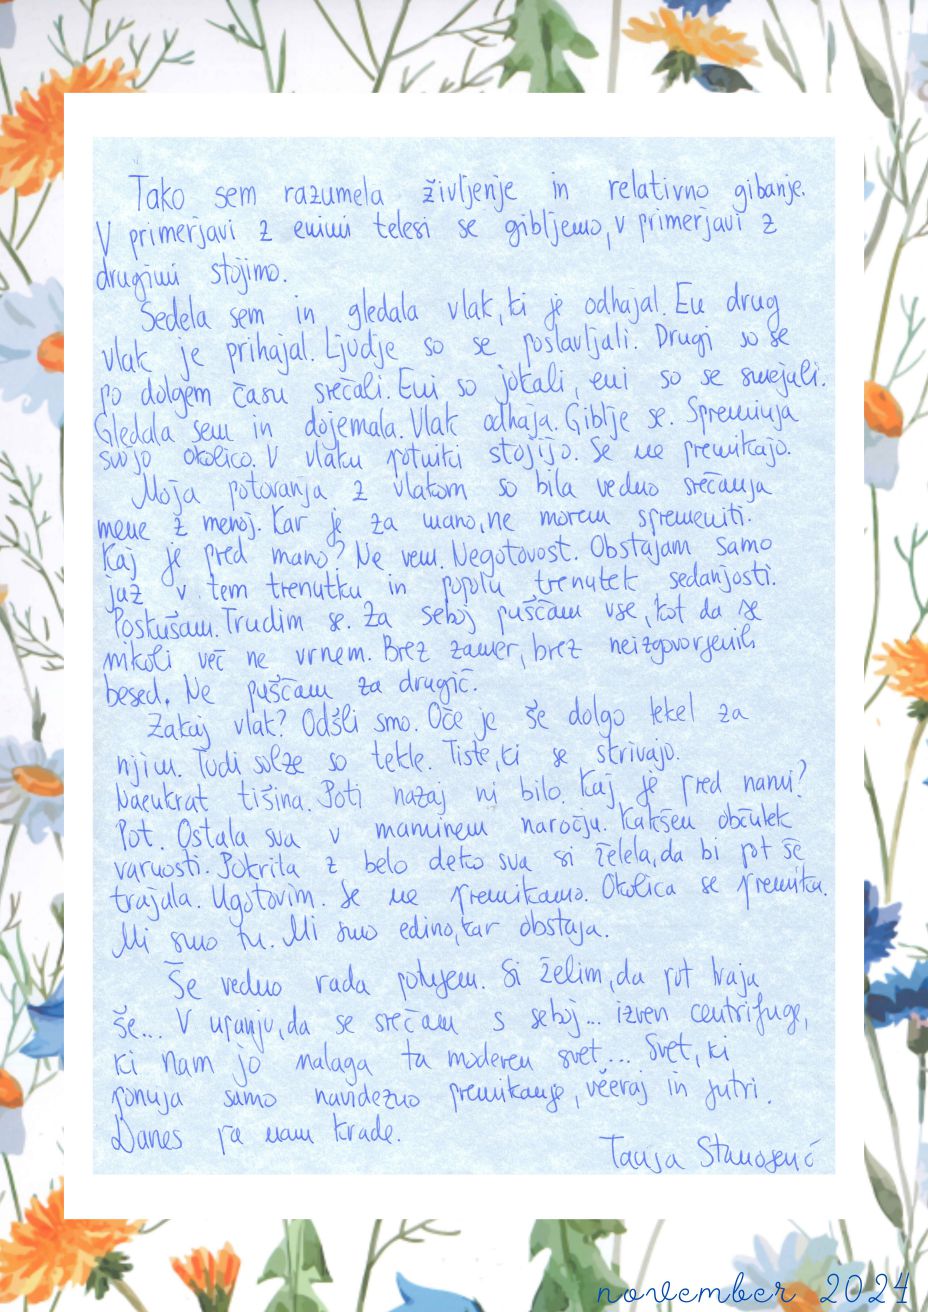 Tako sem razumela življenje in relativno gibanje.
V primerjavi z enimi telesi se gibljemo, v primerjavi z
drugimi stojimo.
Sedela sem in gledala vlak, ki je odhajal. En drug
vlak je prihajal. Ljudje so se poslavljali. Drugi so se
po dolgem času srečali. Eni so jokali, eni so se smejali.
Gledala sem in dojemala. Vlak odhaja. Giblje se. Spreminja
svojo okolico. V vlaku potniki stojijo. Se ne premikajo.
Moja potovanja z vlakom so bila vedno srečanja
mene z menoj. Kar je za mano, ne morem spremeniti.
Kaj je pred mano? Ne vem. Negotovost. Obstajam samo
jaz v tem trenutku in popoln trenutek sedanjosti.
Poskušam. Trudim se. Za seboj puščam vse, kot da se
nikoli več ne vrnem. Brez zamer, brez neizgovorjenih
besed. Ne puščam za drugič.
Zakaj vlak? Odšli smo. Oče je še dolgo tekel za
njim. Tudi solze so tekle. Tiste, ki se skrivajo.
Naenkrat tišina. Poti nazaj ni bilo. Kaj je pred nami?
Pot. Ostala sva v maminem naročju. Kakšen občutek
varnosti. Pokrita z belo deko sva si želela, da bi pot še
trajala. Ugotovim. Se ne premikamo. Okolica se premika.
Mi smo tu. Mi smo edino, kar obstaja.
Še vedno rada potujem. Si želim, da pot traja
še... V upanju, da se srečam s seboj... izven centrifuge,
ki nam jo nalaga ta moderen svet... Svet, ki
ponuja samo navidezno premikanje, včeraj in jutri.
Danes pa nam krade.
Tanja Stanojević
november 2024